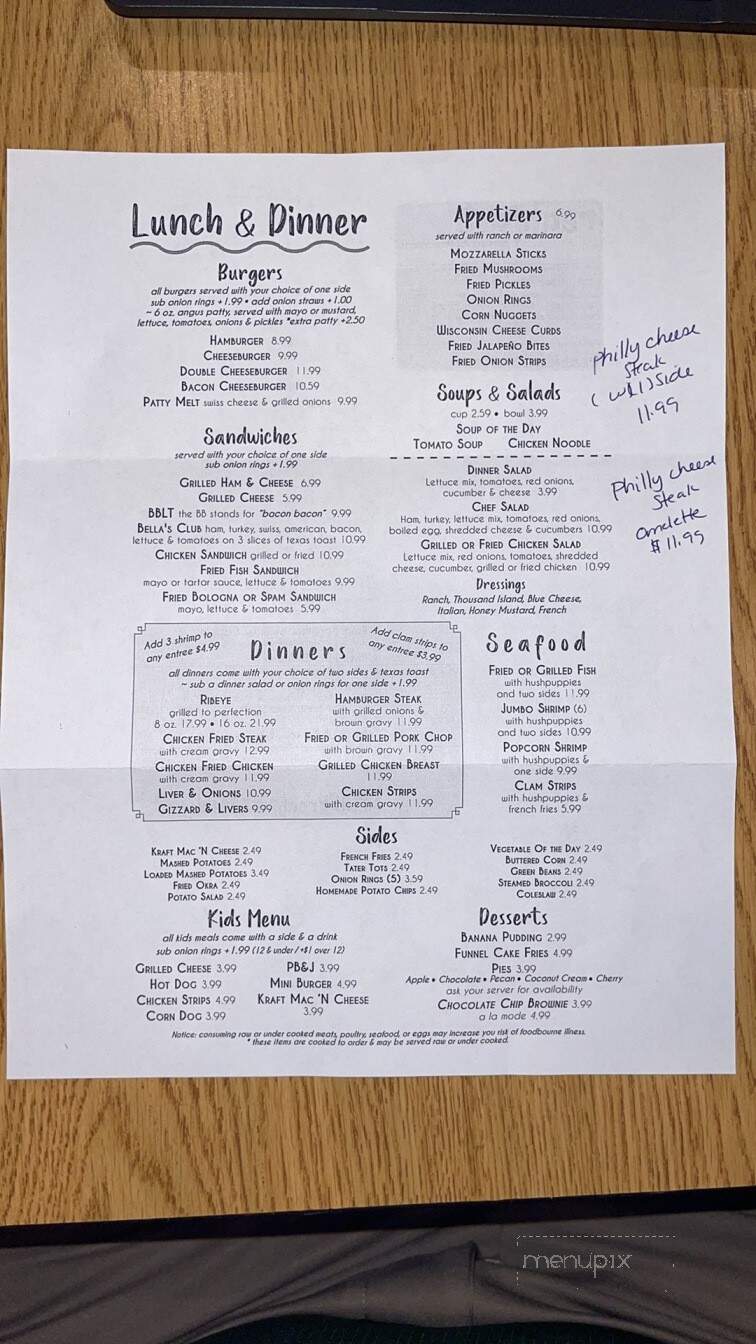 Lunch & Dinner
Burgers
all burgers served with your choice of one side
sub onion rings +1.99 • add onion straws +1.00
~ 6 oz. angus patty, served with mayo or mustard,
lettuce, tomatoes, onions & pickles *extra patty +2.50
Hamburger 8.99
Cheeseburger 9.99
Double Cheeseburger 11.99
Bacon Cheeseburger 10.59
Patty Melt swiss cheese & grilled onions 9.99
Sandwiches
served with your choice of one side
sub onion rings +1.99
Grilled Ham & Cheese 6.99
Grilled Cheese 5.99
BBLT the BB stands for "bacon bacon" 9.99
Bella's Club ham, turkey, swiss, american, bacon,
lettuce & tomatoes on 3 slices of texas toast 10.99
Chicken Sandwich grilled or fried 10.99
Fried Fish Sandwich
mayo or tartar sauce, lettuce & tomatoes 9.99
Fried Bologna or Spam Sandwich
mayo, lettuce & tomatoes 5.99
Appetizers 6.99
served with ranch or marinara
Mozzarella Sticks
Fried Mushrooms
Fried Pickles
Onion Rings
Corn Nuggets
Wisconsin Cheese Curds
Fried Jalapeño Bites
Fried Onion Strips
Soups & Salads
cup 2.59 • bowl 3.99
Soup of the Day
Tomato Soup Chicken Noodle
Dinner Salad
Lettuce mix, tomatoes, red onions,
cucumber & cheese 3.99
Chef Salad
Ham, turkey, lettuce mix, tomatoes, red onions,
boiled egg, shredded cheese & cucumbers 10.99
Grilled or Fried Chicken Salad
Lettuce mix, red onions, tomatoes, shredded
cheese, cucumber, grilled or fried chicken 10.99
Dressings
Ranch, Thousand Island, Blue Cheese,
Italian, Honey Mustard, French
philly cheese
Steak
( w/1) Side
11.99
Philly cheese
Steak
omelette
$ 11.99
Add 3 shrimp to
any entree $4.99
Dinners
Add clam strips to
any entree $3.99
all dinners come with your choice of two sides & texas toast
~ sub a dinner salad or onion rings for one side +1.99
Ribeye
grilled to perfection
8 oz. 17.99 • 16 oz. 21.99
Chicken Fried Steak
with cream gravy 12.99
Chicken Fried Chicken
with cream gravy 11.99
Liver & Onions 10.99
Gizzard & Livers 9.99
Hamburger Steak
with grilled onions &
brown gravy 11.99
Fried or Grilled Pork Chop
with brown gravy 11.99
Grilled Chicken Breast
11.99
Chicken Strips
with cream gravy 11.99
Seafood
Fried or Grilled Fish
with hushpuppies
and two sides 11.99
Jumbo Shrimp (6)
with hushpuppies
and two sides 10.99
Popcorn Shrimp
with hushpuppies &
one side 9.99
Clam Strips
with hushpuppies &
french fries 5.99
Sides
Kraft Mac 'N Cheese 2.49
Mashed Potatoes 2.49
Loaded Mashed Potatoes 3.49
Fried Okra 2.49
Potato Salad 2.49
French Fries 2.49
Tater Tots 2.49
Onion Rings (5) 3.59
Homemade Potato Chips 2.49
Vegetable Of the Day 2.49
Buttered Corn 2.49
Green Beans 2.49
Steamed Broccoli 2.49
Coleslaw 2.49
Kids Menu
all kids meals come with a side & a drink
sub onion rings +1.99 (12 & under/+$1 over 12)
Grilled Cheese 3.99
Hot Dog 3.99
Chicken Strips 4.99
Corn Dog 3.99
PB&J 3.99
Mini Burger 4.99
Kraft Mac 'N Cheese
3.99
Desserts
Banana Pudding 2.99
Funnel Cake Fries 4.99
Pies 3.99
Apple • Chocolate • Pecan • Coconut Cream • Cherry
ask your server for availability
Chocolate Chip Brownie 3.99
a la mode 4.99
Notice: consuming raw or under cooked meats, poultry, seafood, or eggs may increase you risk of foodbourne illness.
* these items are cooked to order & may be served raw or under cooked.
menupix